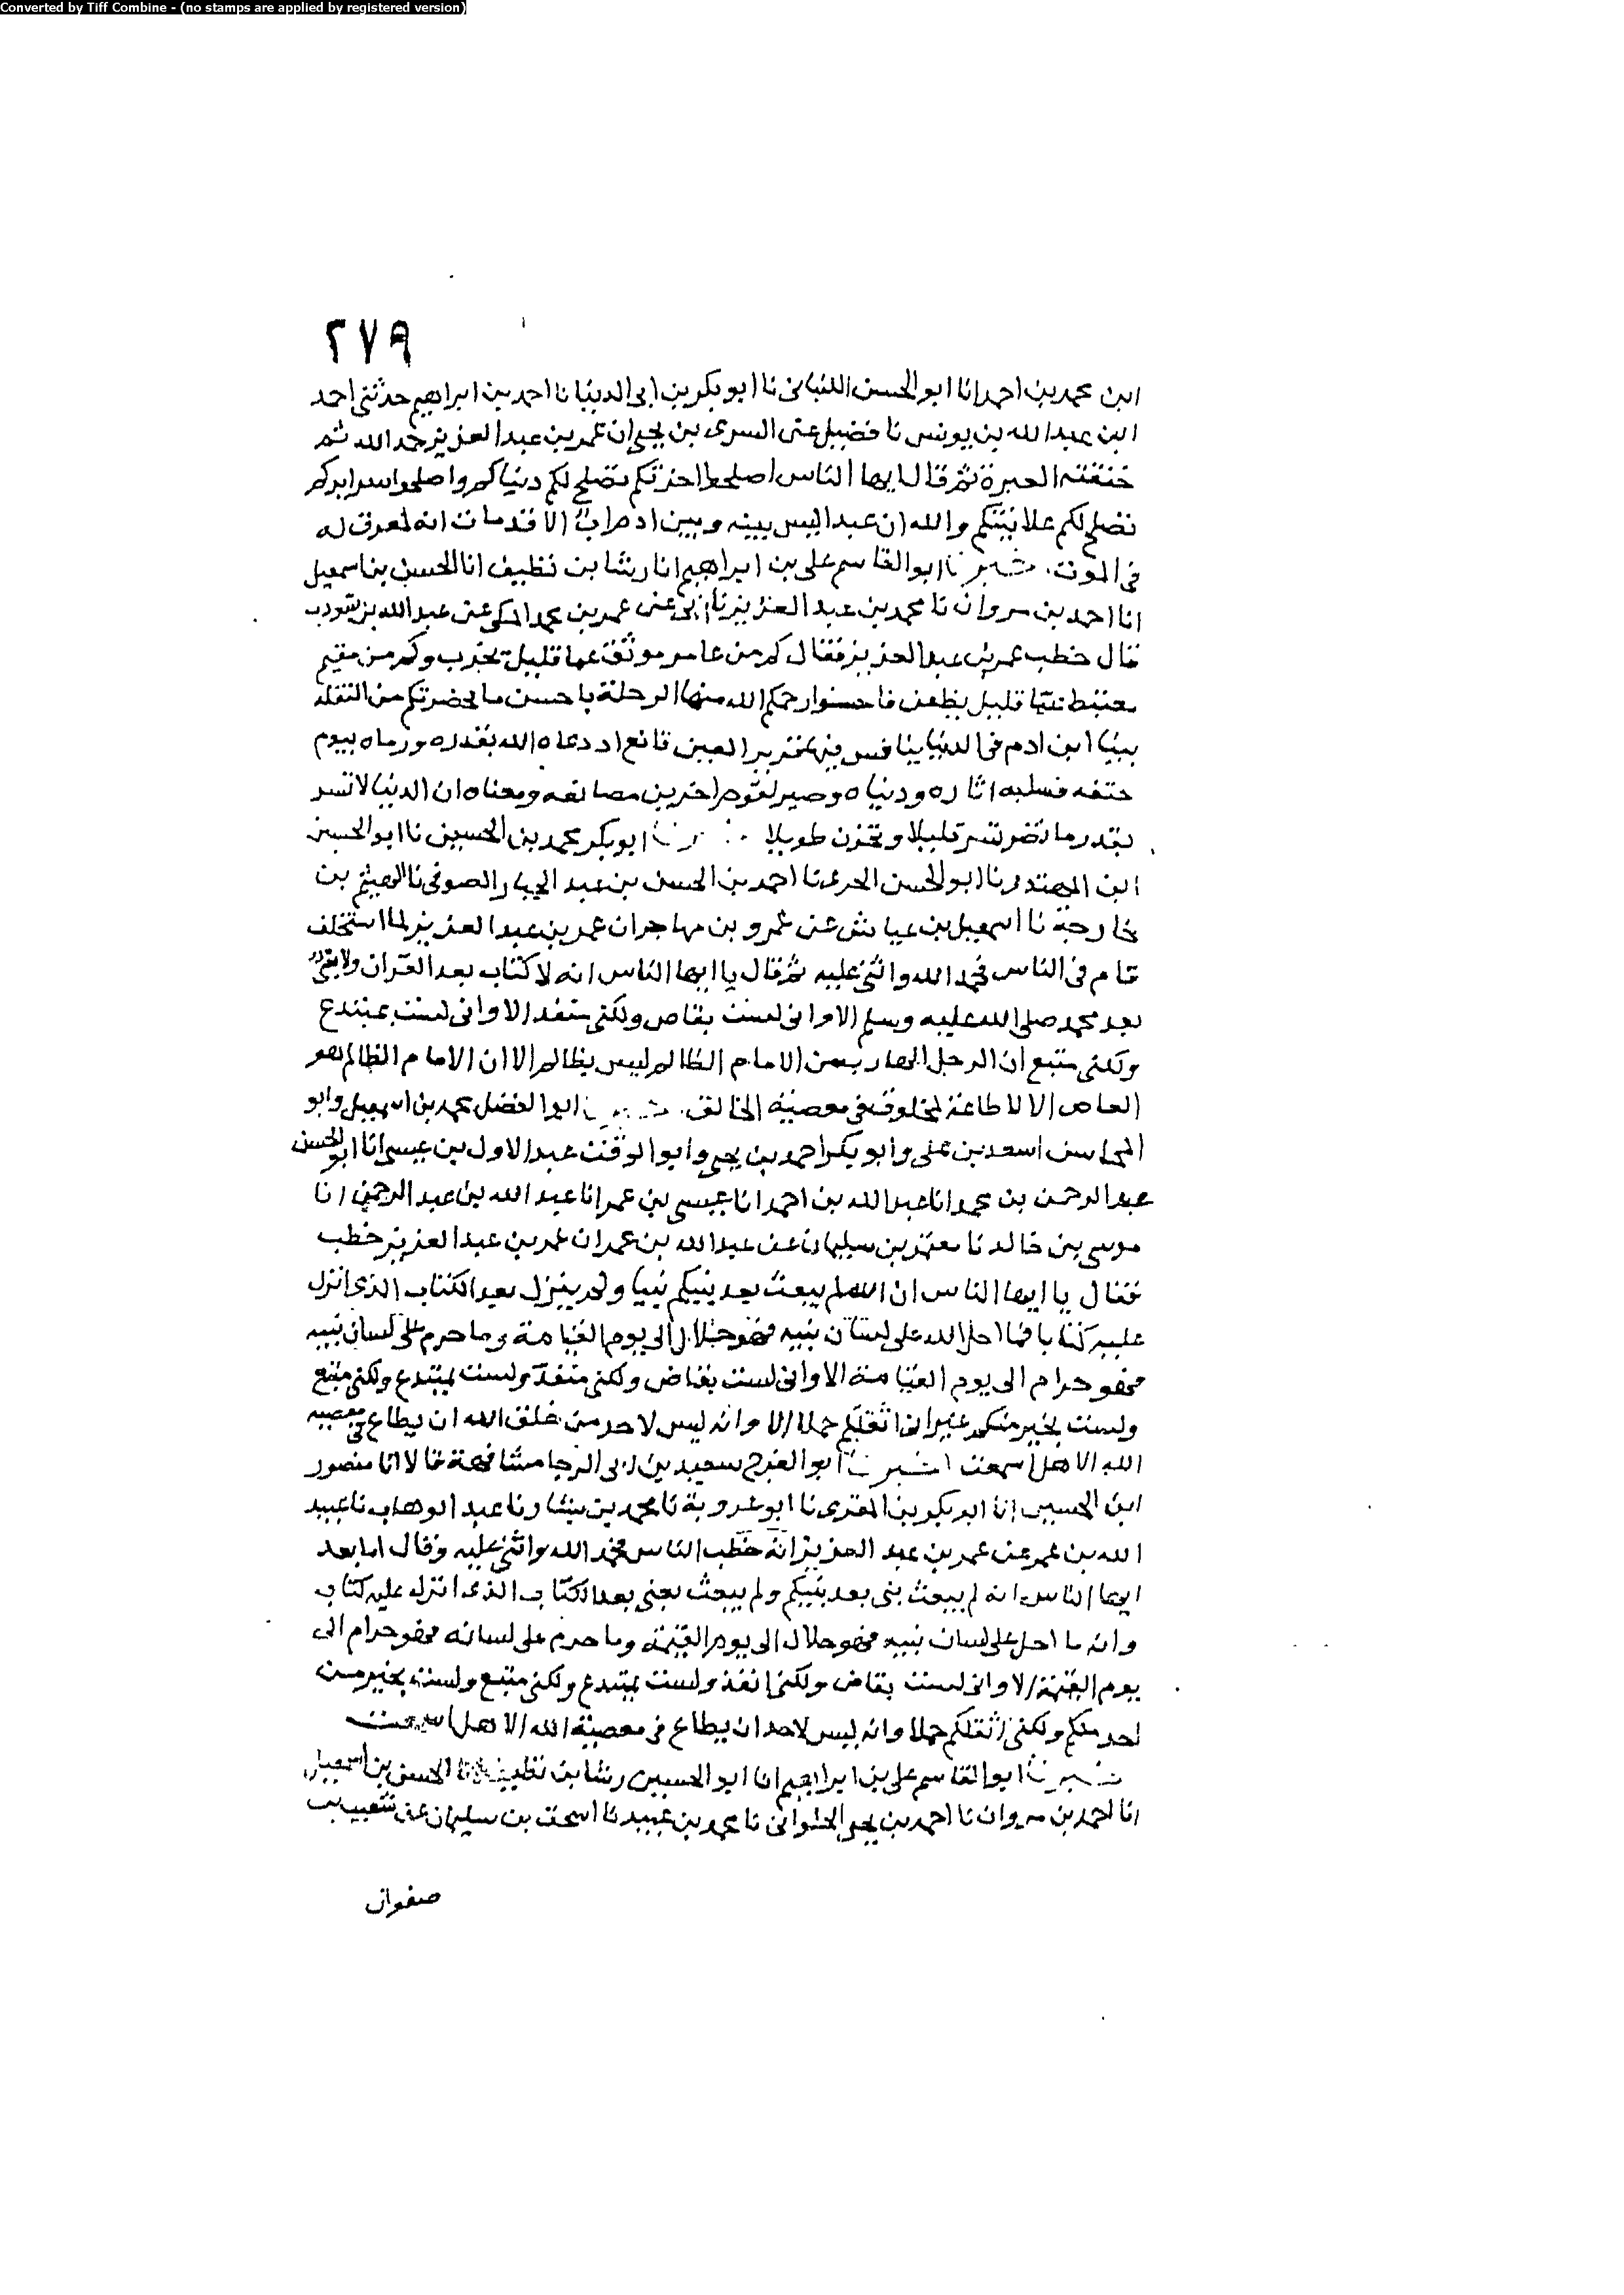 Converted by Tiff Combine - (no stamps are applied by registered version)
٢٧٩
ابن محمد بن احمد انا ابو الحسن اللنبانى نا ابو بكر بن ابى الدنيا نا احمد بن ابراهيم حدثنى احمد
ابن عبد الله بن يونس نا فضيل عن السرى بن يحيى ان عمر بن عبد العزيز حمد الله ثم
خنقته العبرة ثم قال ايها الناس اصلحوا اخرتكم تصلح لكم دنياكم واصلحوا سرايركم
تصلح لكم علانيتكم والله ان عبدا ليس بينه وبين ادم اب الا قد مات انه لمعرق له
فى الموت. اخبرنا ابو القاسم على بن ابراهيم انا رشا بن نظيف انا الحسن بن اسمعيل
انا احمد بن مروان نا محمد بن عبد العزيز نا ابى عن عمر بن محمد المكى عن عبد الله بن شوذب
قال خطب عمر بن عبد العزيز فقال كم من عامر موثق عما قليل يخرب وكم من مقيم
مغتبط عما قليل يظعن فاحسنوا رحمكم الله منها الرحلة باحسن ما بحضرتكم من النقلة
بينا ابن ادم فى الدنيا ينافس فيها قرير العين قانع اذ دعاه الله بقدره ورماه بيوم
حتفه فسلبه اثاره ودنياه وصير لقوم اخرين مصانعه ومغناه ان الدنيا لا تسر
بقدر ما تضر تسر قليلا وتحزن طويلا اخبرنا ابو بكر محمد بن الحسين نا ابو الحسين
ابن المهتدى نا ابو الحسن الحربى نا احمد بن الحسن بن عبد الجبار الصوفى نا الهيثم بن
خارجة نا اسمعيل بن عياش عن عمرو بن مهاجر ان عمر بن عبد العزيز لما استخلف
قام فى الناس فحمد الله واثنى عليه ثم قال يا ايها الناس انه لا كتاب بعد القران ولا نبى
بعد محمد صلى الله عليه وسلم الا وانى لست بقاض ولكنى منفذ الا وانى لست بمبتدع
ولكنى متبع ان الرجل الهارب من الامام الظالم ليس بظالم الا ان الامام الظالم هو
العاصى الا لا طاعة لمخلوق فى معصية الخالق. اخبرنا ابو الفضل محمد بن اسمعيل وابو
المحاسن اسعد بن على وابو بكر احمد بن يحيى وابو الوقت عبد الاول بن عيسى انا ابو الحسن
عبد الرحمن بن محمد انا عبد الله بن احمد انا عيسى بن عمر انا عبد الله بن عبد الرحمن انا
موسى بن خالد نا معتمر بن سليمان عن عبيد الله بن عمر ان عمر بن عبد العزيز خطب
فقال يا ايها الناس ان الله لم يبعث بعد نبيكم نبيا ولم ينزل بعد الكتاب الذى انزل
عليه كتابا فما احل الله على لسان نبيه فهو حلال الى يوم القيامة وما حرم على لسان نبيه
فهو حرام الى يوم القيامة الا وانى لست بقاض ولكنى منفذ ولست بمبتدع ولكنى متبع
ولست بخير منكم غير انى اثقلكم حملا الا وانه ليس لاحد من خلق الله ان يطاع فى معصية
الله الا هل اسمعت اخبرنا ابو الفرج سعيد بن ابى الرجا مشافهة قالا انا منصور
ابن الحسين انا ابو بكر بن المقرى نا ابو عروبة نا محمد بن بشار نا عبد الوهاب نا عبيد
الله بن عمر عن عمر بن عبد العزيز انه خطب الناس فحمد الله واثنى عليه وقال اما بعد
ايها الناس انه لم يبعث نبى بعد نبيكم ولم يبعث يعنى بعد الكتاب الذى انزل عليه كتاب
وانه ما احل على لسان نبيه فهو حلال الى يوم القيمة وما حرم على لسانه فهو حرام الى
يوم القيمة الا وانى لست بقاض ولكنى انفذ ولست بمبتدع ولكنى متبع ولست بخير من
احد منكم ولكنى اثقلكم حملا وانه ليس لاحد ان يطاع فى معصية الله الا هل اسمعت
اخبرنا ابو القاسم على بن ابراهيم انا ابو الحسين رشا بن نظيف انا الحسن بن اسمعيل
انا احمد بن مروان نا احمد بن يحيى الحلوانى نا محمد بن عبيد نا اسحق بن سليمان عن شعيب بن
صفوان